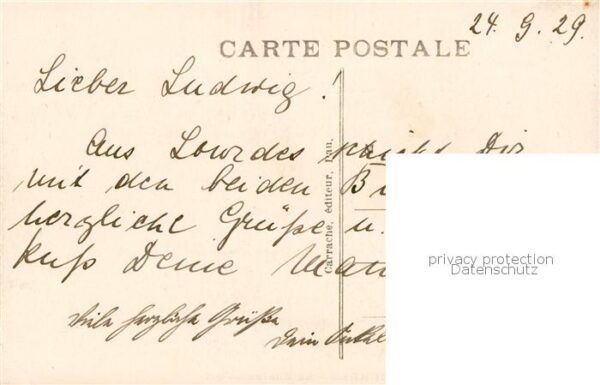 24. 9. 29.
CARTE POSTALE
Lieber Ludwig!
Aus Lourdes schickt Dir
mit den beiden
herzliche Grüße u.
Kuß Deine
Viele herzliche Grüße
Dein Onkel
Carrache, éditeur, Pau.
privacy protection
Datenschutz